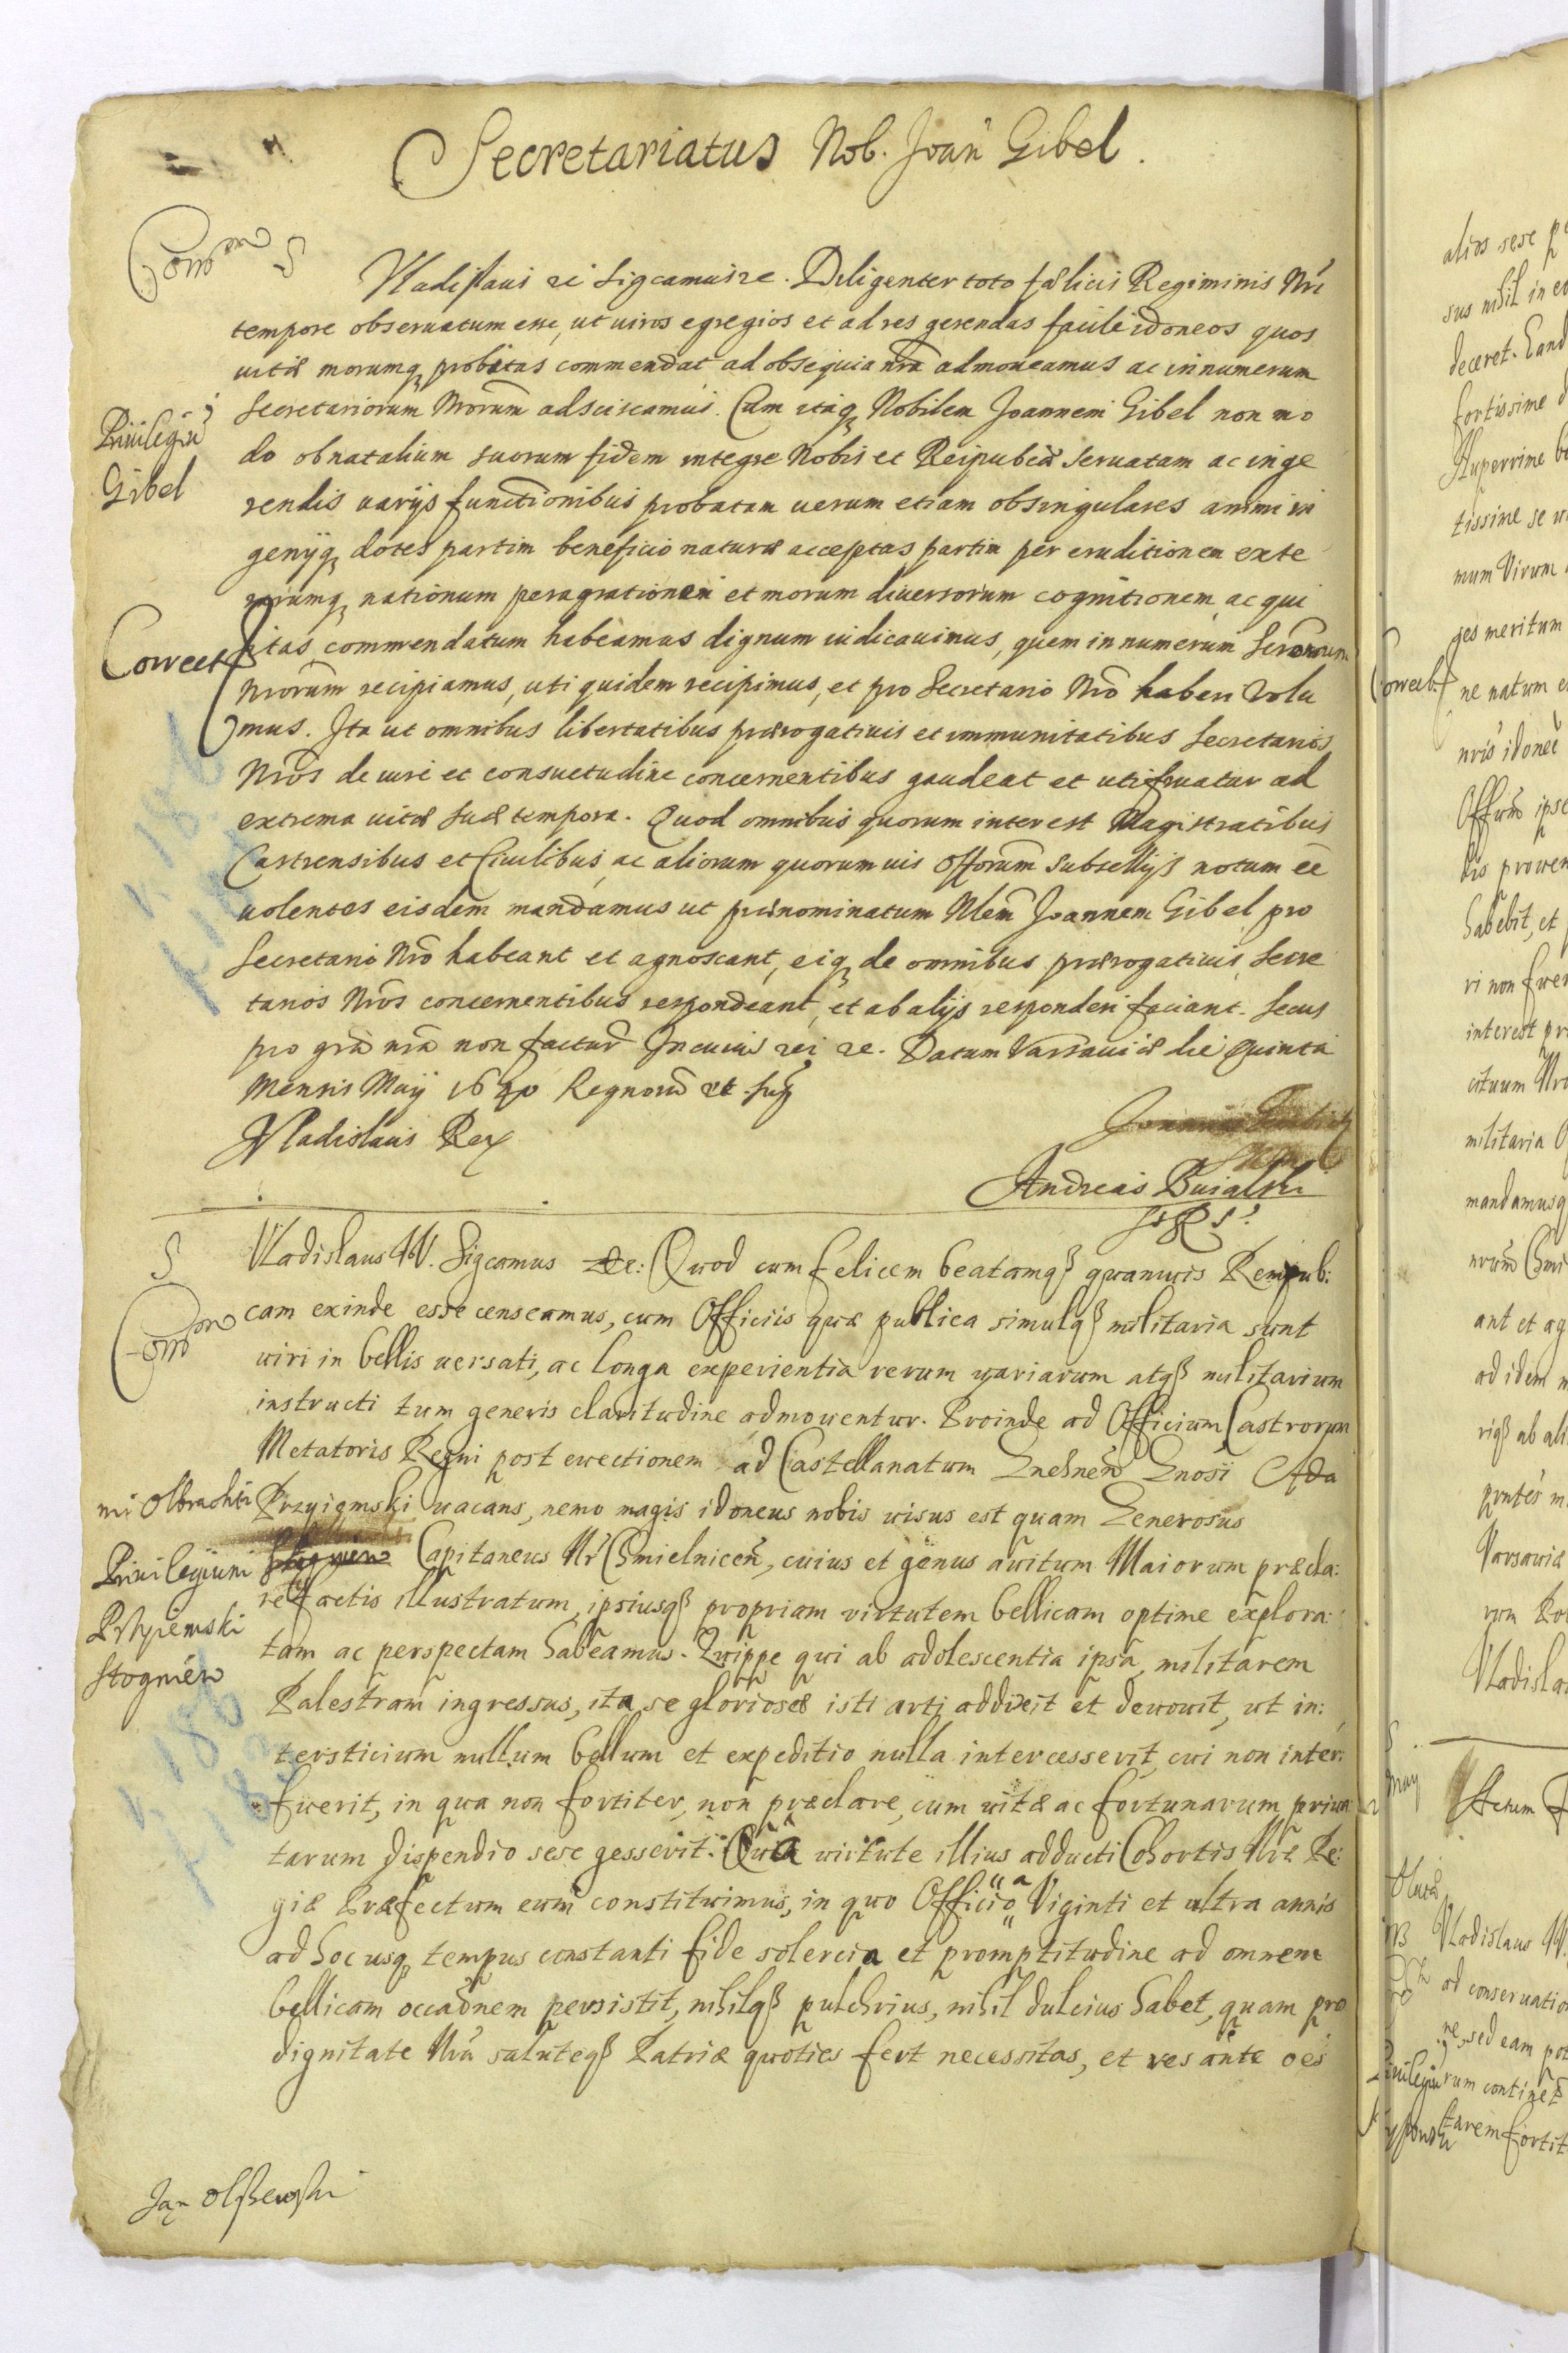 Secretariatus Nob. Joan̄ Gibel.
S
Vladislaus Sigcamus Diligenter toto fælicis Regiminis Nr̄i
tempore obseruatum esse, ut uiros egregios et ad res gerendas facile idoneos quos
uitæ morumq probitas commendat ad obsequia nr̄a admoneamus ac in numerum
Secretariorum Nr̄orum adsciscamus. Cum itaq Nobilem Joannem Gibel non mo
do ob natalium suorum fidem integre Nobis et Reipubcæ seruatam ac in ge
rendis uarijs functionibus probatam uerum etiam ob singulares animi in
genijq dotes partim beneficio naturæ acceptas partim per eruditionem exte
rarumq nationum peragrationem et morum diuersorum cognitionem acqui
sitas commendatum habeamus dignum iudicauimus, quem in numerum
Nr̄orum recipiamus, uti quidem recipimus, et pro Secretario Nr̄o haberi volu
mus. Ita ut omnibus libertatibus prærogatiuis et immunitatibus Secretarios
Nr̄os de iure et consuetudine concernentibus gaudeat et uti fruatur ad
extrema uitæ suæ tempora. Quod omnibus quorum interest Magistratibus
Castrensibus et Ciuilibus, ac aliorum quorumuis Offorum Subsellijs notum eē
uolentes eisdem mandamus ut prænominatum Nlem̄ Joannem Gibel pro
Secretario Nr̄o habeant et agnoscant, eiq de omnibus prærogatiuis Secre
tarios Nr̄os concernentibus respondeant, et ab alijs responderi faciant. Secus
pro gr̄a nr̄a non factur̄ In cuius rei Datum Varsauiæ die Quinta
Mensis Maij 1640 Regnorū
Vladislaus Rex
Andreas Buialski
Priuilegiū
Gibel
Correct
S
Vladislaus IV. Sigcamus Quod cum felicem beatamq quamuis Rempub:
cam exinde esse censeamus, cum Officiis quæ publica simulq militaria sunt
uiri in bellis uersati, ac longa experientia rerum variarum atq militarium
instructi tum generis claritudine admouentur. Proinde ad Officium Castrorum
Metatoris Regni post euectionem ad Castellanatum Gnesnen̄ Gnosi Ada
mi Olbrachti Przyiemski uacans, nemo magis idoneus nobis uisus est quam Generosus
Capitaneus Nr̄ Chmielnicen̄, cuius et genus auitum Maiorum præcla:
re factis illustratum, ipsiusq propriam virtutem bellicam optime explora:
tam ac perspectam habeamus. Quippe qui ab adolescentia ipsa militarem
Palestram ingressus, ita se gloriosæ isti arti addixit et deuouit, ut in:
tersticium nullum bellum et expeditio nulla intercesserit, cui non inter:
fuerit, in qua non fortiter, non præclare, cum uitæ ac fortunarum priua
tarum dispendio sese gesserit. Qua uirtute illius adducti Cohortis Nr̄æ Re:
giæ Præfectum eum constituimus, in quo Officio Viginti et ultra annis
ad hoc usq tempus constanti fide solercia et promptitudine ad omnem
bellicam occaōnem persistit, nihilq pulchrius, nihil dulcius habet, quam pro
dignitate Nr̄a saluteq Patriæ quoties fert necessitas, et res ante oēs
Priuilegium
Przyiemski
Stognieu
Jan Olszewski